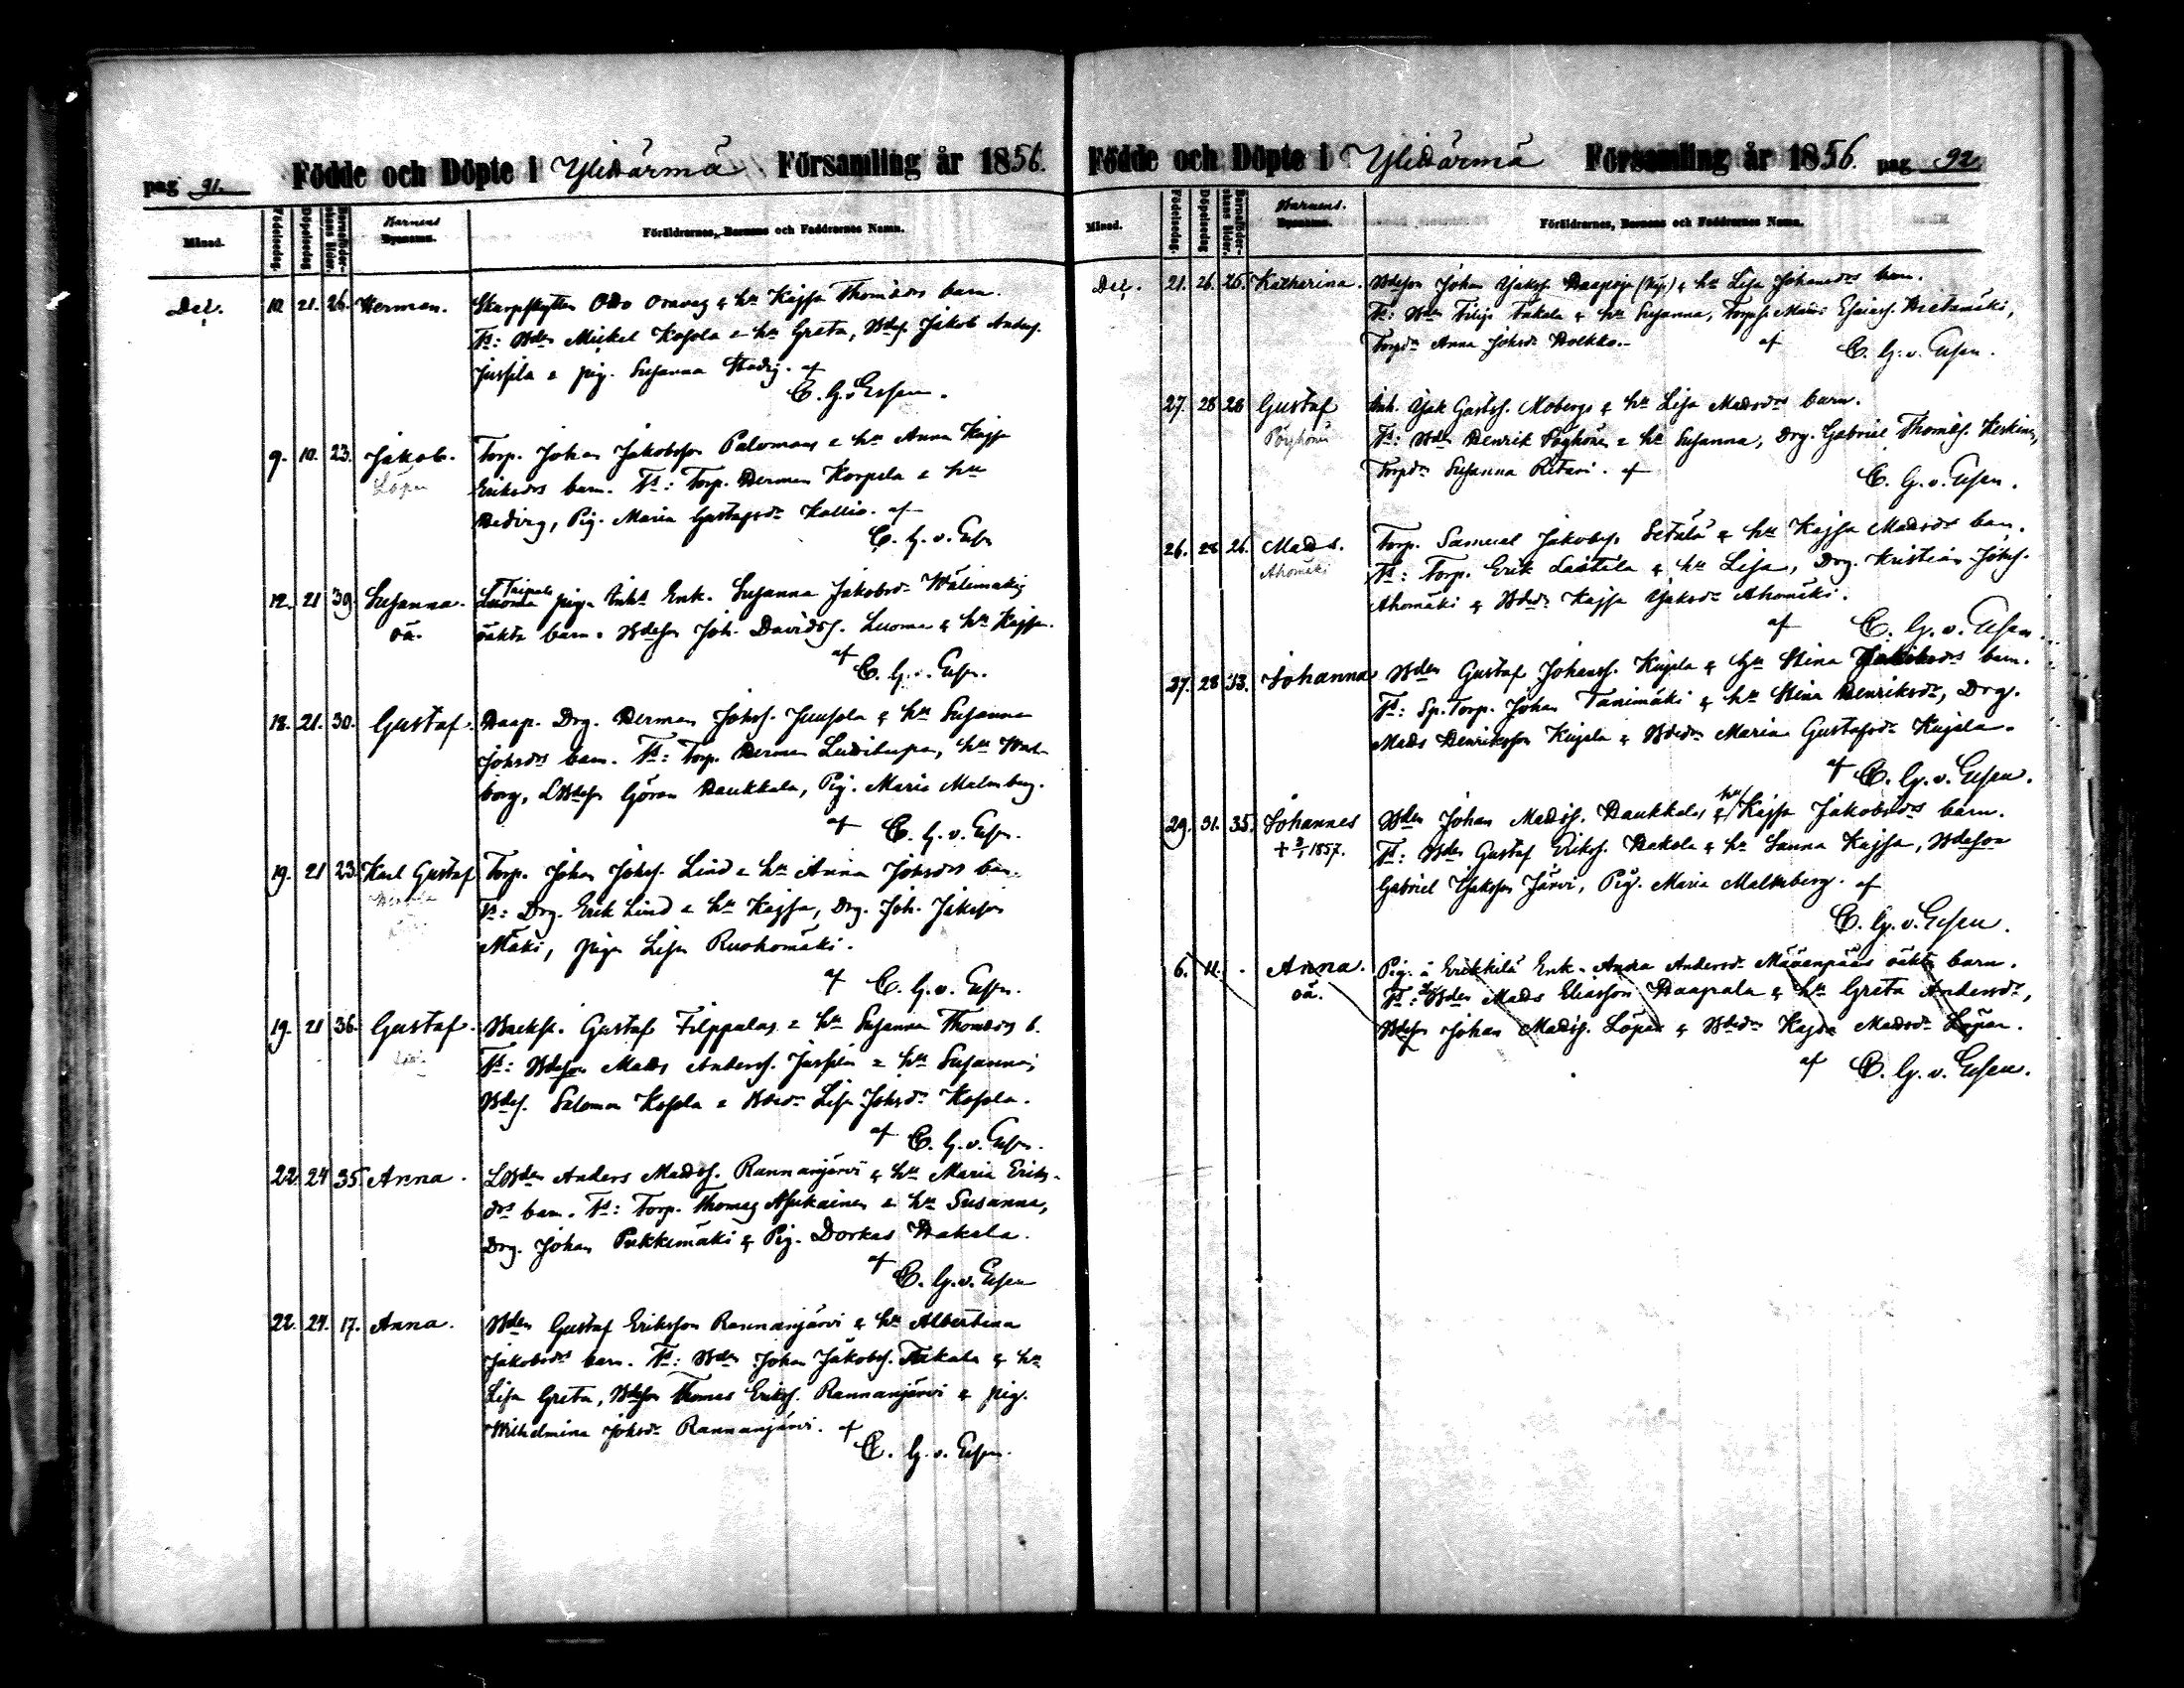 pag 91. Födde och Döpte i Ylihärmä Församling år 1856.
Månad. Födelsedag. Döpelsedag Barnaföderskans ålder. Barnens Bynamn. Föräldrarnes, Barnens och Faddrarnes Namn.
Dec. 10. 21. 26. Herman. Skarpskytten Odo Oravas & hu Kajsa Thomasdrs barn.
Fd: Bden Mickel Kosola & hu Greta, Bdes. Jakob Anders.
Jussila & pig. Susanna Hedvig. af
C. G. v. Essen.
9. 10. 23. Jakob. Torp. Johan Jakobsson Palomans & hu Anna Kajsa
Löpa Eriksdrs barn. Fd: Torp. Herman Korpela & hu
Hedvig, Pig. Maria Gustafsdr Kallio. af
C. G. v. Essen
12. 21 39. Susanna. Luoma Taipale piga Inhs Enk. Susanna Jakobsdr Wälimäkis
oä. oäkta barn. Bdeson Joh. Davidss. Luoma & hu Kajsa.
af C. G. v. Essen.
18. 21. 30. Gustaf. Haap. Drg. Herman Johss. Juusola & hu Susanna
Johsdrs barn. Fd: Torp. Herman Luoma, hu Wal-
borg, LBdeson Göran Haukkala, Pig. Maria Malmberg.
af C. G. v. Essen.
19. 21 23. Karl Gustaf Torp. Johan Johss. Lind & hu Anna Johsdrs barn.
Fd: Drg. Erik Lind & hu Kajsa, Drg. Joh. Jakssn
Mäki, piga Lisa Ruohomäki.
af C. G. v. Essen.
19. 21 36. Gustaf. Backst. Gustaf Filppulas & hu Susanna Thomasdrs b.
Fd: Bdeson Mads Anderss. Jussila & hu Susanna,
Bdes. Salomon Kosola & Bdedr Lisa Johsdr Kosola.
af C. G. v. Essen.
22. 24 35. Anna. LBden Anders Madss. Rannanjärvi & hu Maria Eriks-
drs barn. Fd: Torp. Thomas Asukainen & hu Susanna,
Drg. Johan Pukkimäki & Pig. Dorkas Hakala.
af C. G. v. Essen
22. 24. 17. Anna. Bden Gustaf Eriksson Rannanjärvi & hu Albertina
Jakobsdrs barn. Fd: Bden Johan Jakobss. Takala & hu
Lisa Greta, Bdeson Thomas Erikss. Rannanjärvi & pig.
Wilhelmina Johsdr Rannanjärvi. af
C. G. v. Essen.
Födde och Döpte i Ylihärmä Församling år 1856. pag 92.
Månad. Födelsedag. Döpelsedag Barnaföderskans ålder. Barnens. Bynamn. Föräldrarnes, Barnens och Faddrarnes Namn.
Dec. 21. 26. 26. Katharina. Bdeson Johan Jakss. Haapoja & hu Lisa Johansdrs barn.
Fd: Bden Filip Takala & hu Susanna, Torps. Mats Esaiass. Hietamäki,
Torpdr Anna Johsdr Holkko. af C. G. v. Essen.
27. 28 28 Gustaf Inh. Jak Gustss. Mobergs & hu Lisa Madsdrs barn.
Pöyhönen Fd: Bden Henrik Pöyhönen & hu Susanna, Drg. Gabriel Thomass. Keskinen,
Torpdr Susanna Ritari. af C. G. v. Essen.
26. 28 26. Mads. Torp. Samuel Jakobss. Setälä & hu Kajsa Madsdrs barn.
Ahomäki Fd: Torp. Erik Laitila & hu Lisa, Drg. Kristian Johss.
Ahomäki & Bdedr Kajsa Jaksdr Ahomäki.
af C. G. v. Essen.
27. 28 33. Johanna Bden Gustaf Johanss. Kujala & hu Stina Jakobsdrs barn.
Fd: Sp. Torp. Johan Tanimäki & hu Stina Henriksdr, Drg.
Mads Henriksson Kujala & Bdedr Maria Gustafsdr Kujala.
af C. G. v. Essen.
29. 31. 35. Johannes Bden Johan Madss. Haukkalas & hu Kajsa Jakobsdrs barn.
+ 3/1 1857. Fd: Bden Gustaf Erikss. Hakola & hu Sanna Kajsa, Bdeson
Gabriel Jaksson Järvi, Pig. Maria Malmberg. af
C. G. v. Essen.
6. 11. . Anna. Pig. å Erikkilä Enk. Anna Andersdr Mäenpääs oäkta barn.
oä. Fd: LBden Mads Eliasson Haapala & hu Greta Andersdr,
Bdeson Johan Madss. Löpar & Bdedr Kajsa Madsdr Löpar.
af C. G. v. Essen.